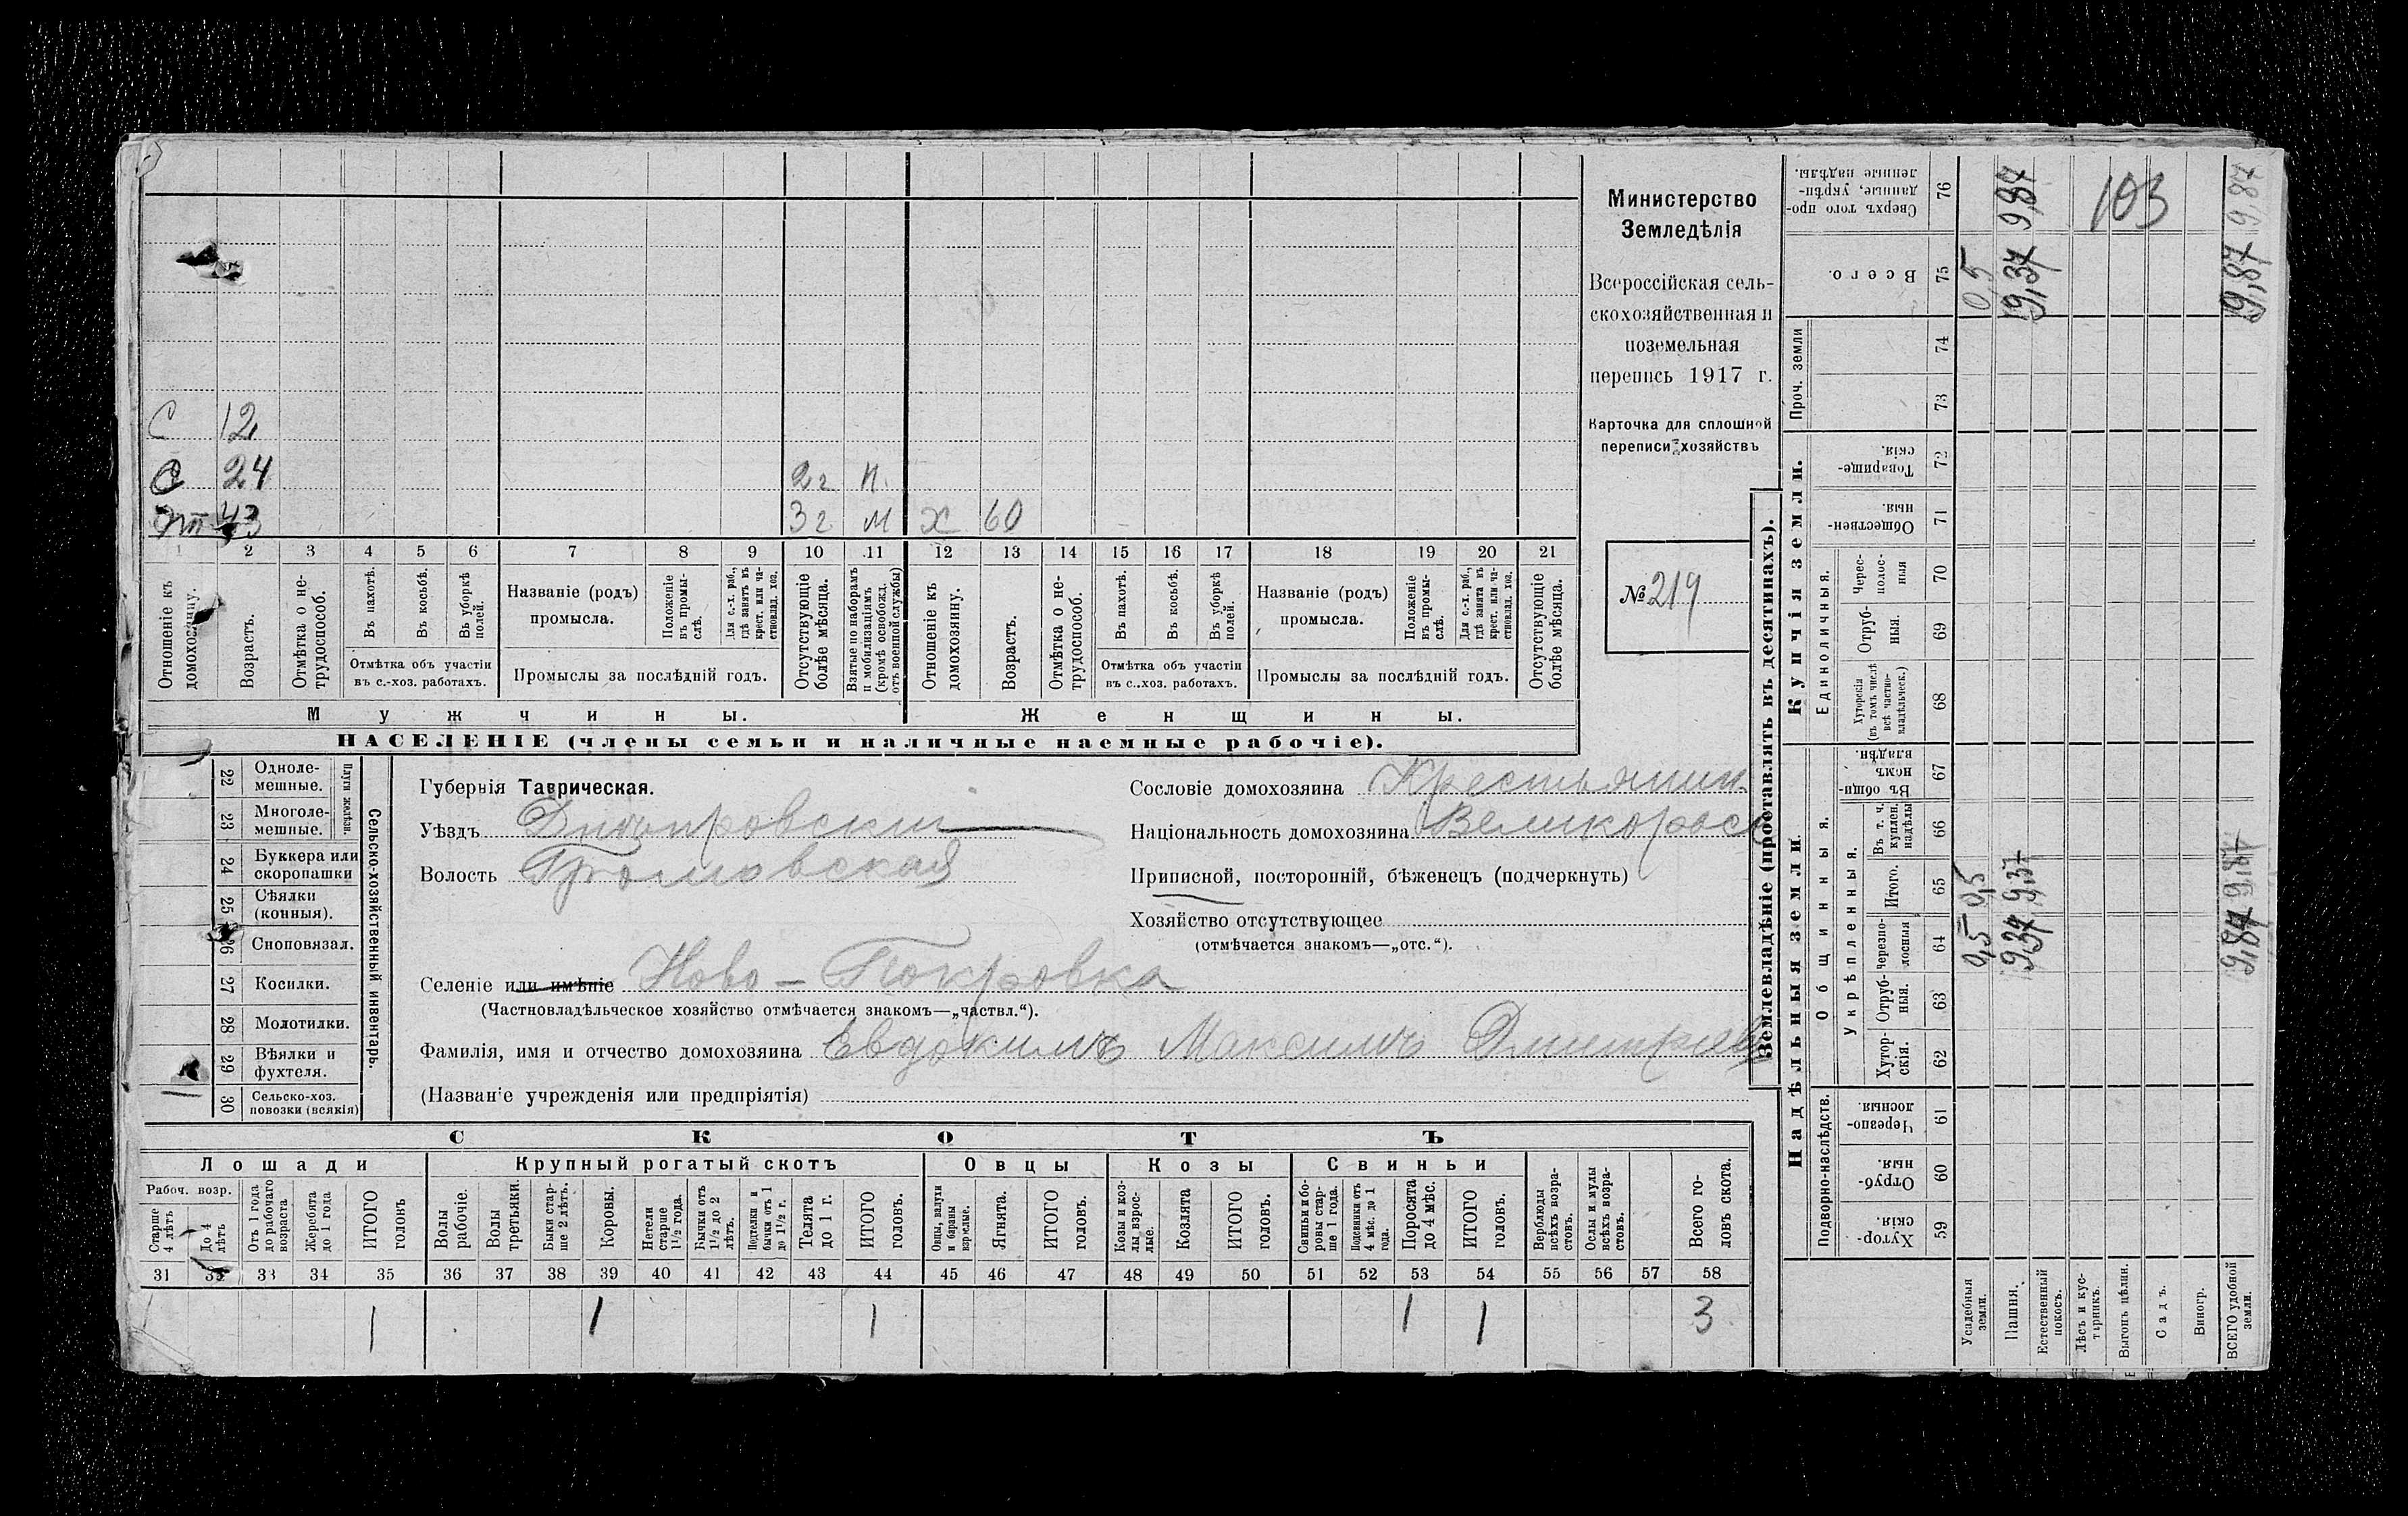 С 12
С 24 2 г п.
От 43 3 г м Х 60
1 2 3 4 5 6 7 8 9 10 11 12 13 14 15 16 17 18 19 20 21
Отношеніе къ домохозяину.
Возрастъ.
Отмѣтка о не-трудоспособ.
Въ пахотѣ.
Въ косьбѣ.
Въ уборкѣ полей.
Отмѣтка объ участіи въ с.-хоз. работахъ.
Названіе (родъ) промысла.
Положеніе въ промы-слѣ.
Для с.-х. раб., гдѣ занятъ въ крест. или ча-стновлад. хоз.
Промыслы за послѣдній годъ.
Отсутствующіе болѣе мѣсяца.
Взятые по наборамъ и мобилизаціямъ (кромѣ освобожд. отъ военной службы)
Отношеніе къ домохозяину.
Возрастъ.
Отмѣтка о не-трудоспособ.
Въ пахотѣ.
Въ косьбѣ.
Въ уборкѣ полей.
Отмѣтка объ участіи въ с.-хоз. работахъ.
Названіе (родъ) промысла.
Положеніе въ промы-слѣ.
Для с.-х. раб., гдѣ занята въ крест. или ча-стновлад. хоз.
Промыслы за послѣдній годъ.
Отсутствующіе болѣе мѣсяца.
Мужчины.
Женщины.
НАСЕЛЕНІЕ (члены семьи и наличные наемные рабочіе).
Министерство
Земледѣлія
Всероссійская сель-
скохозяйственная и
поземельная
перепись 1917 г.
Карточка для сплошной
переписи хозяйствъ
№ 219
Сельско-хозяйственный инвентарь.
Плуги желѣзн.
22 Одноле-мешные.
23 Многоле-мешные.
24 Буккера или скоропашки
25 Сѣялки (конныя).
26 Сноповязал.
27 Косилки.
28 Молотилки.
29 Вѣялки и фухтеля.
30 Сельско-хоз. повозки (всякія)
Губернія Таврическая.
Уѣздъ Днѣпровскій
Волость Громовская
Селеніе или имѣніе Ново-Покровка
(Частновладѣльческое хозяйство отмѣчается знакомъ—„частвл.“).
Фамилія, имя и отчество домохозяина Евдокимъ Максимъ Дмитріевъ
(Названіе учрежденія или предпріятія)
Сословіе домохозяина Крестьянин.
Національность домохозяина Великоросс
Приписной, посторонній, бѣженецъ (подчеркнуть)
Хозяйство отсутствующее
(отмѣчается знакомъ—„отс.“).
СКОТЪ
Лошади
Крупный рогатый скотъ
Овцы
Козы
Свиньи
Рабоч. возр.
Старше 4 лѣтъ
До 4 лѣтъ
Отъ 1 года до рабочаго возраста
Жеребята до 1 года
ИТОГО головъ
Волы рабочіе.
Волы третьяки.
Быки стар-ше 2 лѣтъ.
Коровы.
Нетели старше 1½ года.
Бычки отъ 1½ до 2 лѣтъ.
Подтелки и бычки отъ 1 до 1½ г.
Телята до 1 г.
ИТОГО головъ.
Овцы, валухи и бараны взрослые.
Ягнята.
ИТОГО головъ.
Козы и коз-лы взрос-лые.
Козлята
ИТОГО головъ.
Свиньи и бо-ровы стар-ше 1 года.
Подсвинки отъ 4 мѣс. до 1 года.
Поросята до 4 мѣс.
ИТОГО головъ.
Верблюды всѣхъ возра-стовъ.
Ослы и мулы всѣхъ возра-стовъ.
Всего го-ловъ скота.
31 32 33 34 35 36 37 38 39 40 41 42 43 44 45 46 47 48 49 50 51 52 53 54 55 56 57 58
1 1 1 1 1 3
Землевладѣніе (проставлять въ десятинахъ).
Надѣльныя земли.
Купчія земли.
Проч. земли
Подворно-наслѣдств.
Общинныя.
Укрѣпленныя.
Единоличныя.
Хутор-скія. 59
Отруб-ныя. 60
Черезпо-лосныя. 61
Хутор-скія. 62
Отруб-ныя. 63
Черезпо-лосныя 64
Итого. 65
Въ т. ч. куплен. надѣлы 66
Въ общи-номъ владѣн. 67
Хуторскія (въ томъ числѣ всѣ частно-владѣльческ.) 68
Отруб-ныя. 69
Черес-полос-ныя 70
Обществен-ныя. 71
Товарище-скія. 72
73
74
Всего. 75
Сверхъ того про-данные, укрѣп-ленные надѣлы. 76
Усадебныя земли. 0,5 0,5 0,5
Пашня. 9,37 9,37 9,37 9,87
Естественный покосъ.
Лѣсъ и кус-тарникъ.
Выгонъ цѣлин.
Садъ.
Виногр.
ВСЕГО удобной земли. 9,87 9,87 9,87 9,87
103